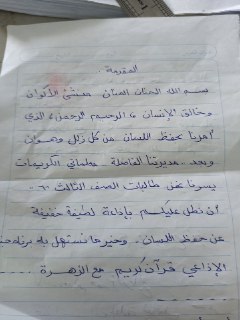 المقدمة
بسم الله الحنان المنان . منشئ الأكوان
وخالق الإنسان ، الرحيم الرحمن ، الذي
أمرنا بحفظ اللسان . من كل زلل وهوان
وبعد . مديرتنا الفاضلة . معلماتي الكريمات
يسرنا نحن طالبات الصف الثالث -٦-
أن نطل عليكم بإذاعة لطيفة خفيفة
عن حفظ اللسان . وخير ما نستهل به برنامجنا
الإذاعي قرآن كريم مع الزهرة